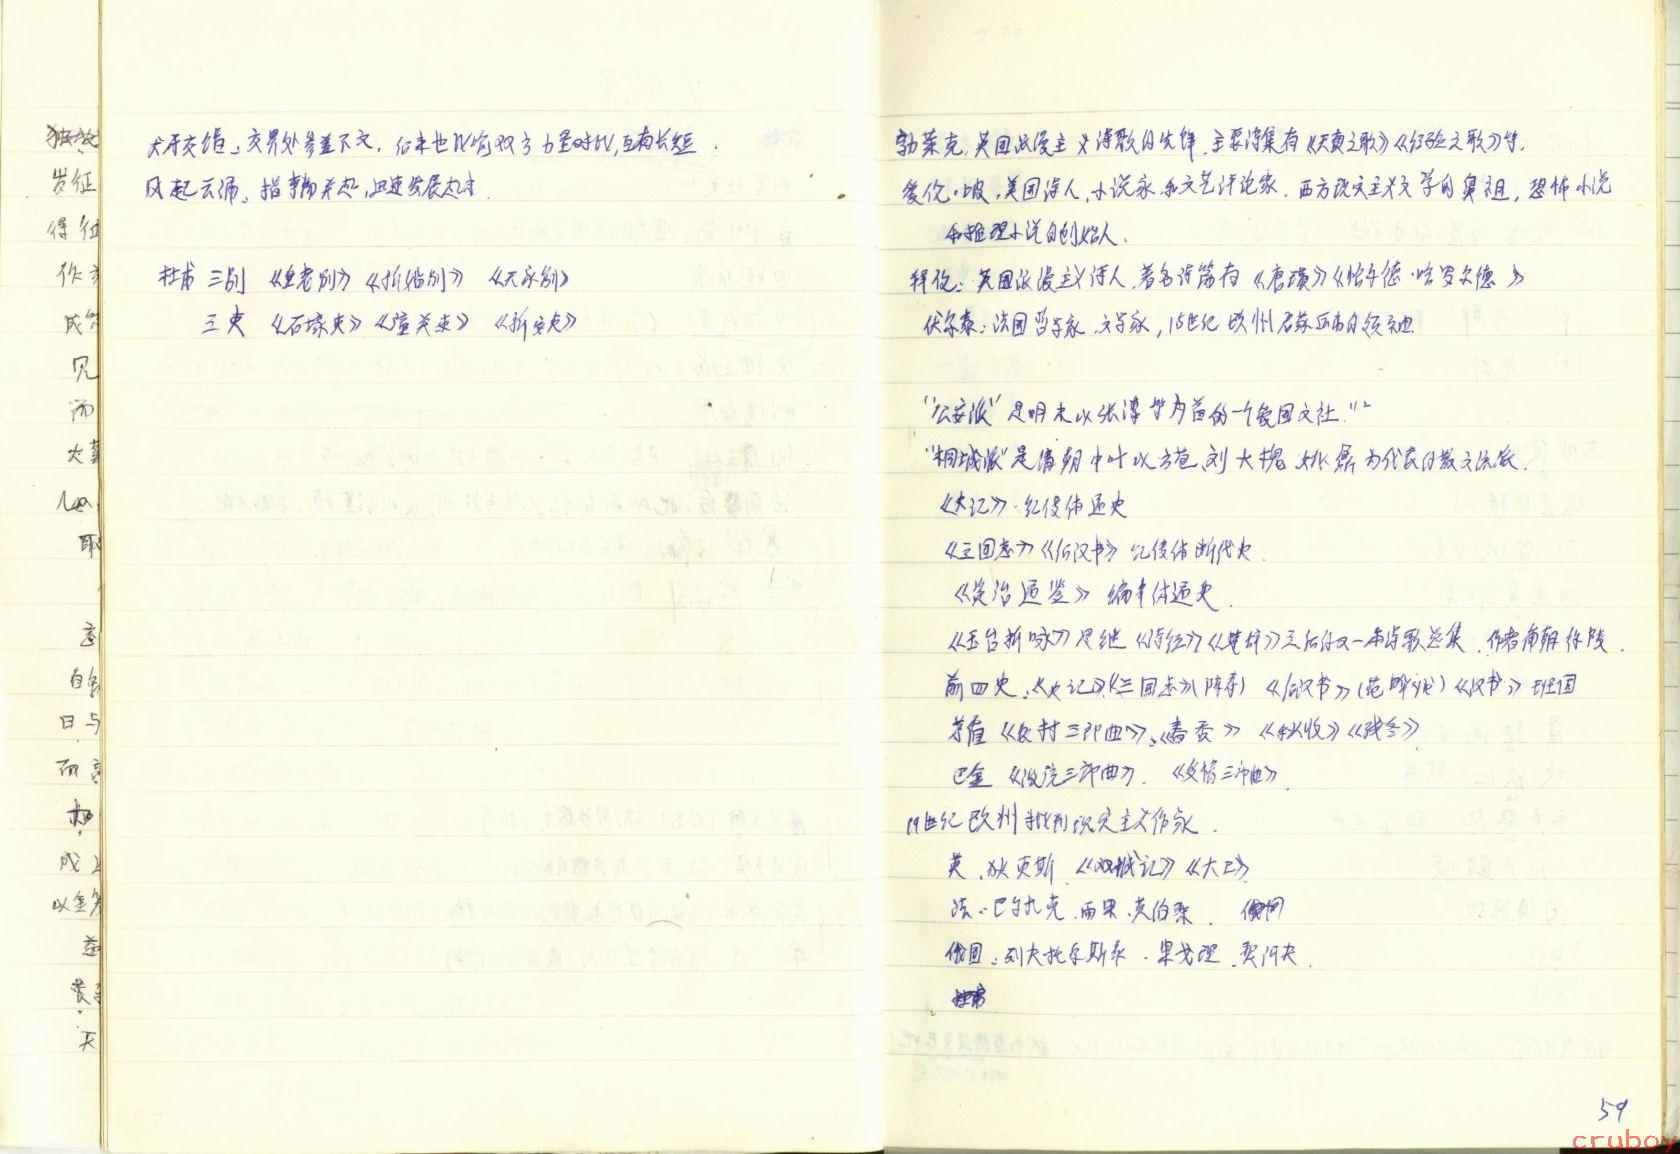 独放
岁征
得征
作
成
见
而
大
取
忘
自
日与
而
成
以
益
装
天
犬牙交错：交界处参差不齐，后来也比喻双方力量对比，互有长短．
风起云涌：指事物兴起，迅速发展起来．
杜甫 三别 《垂老别》《新婚别》 《无家别》
三吏 《石壕吏》《潼关吏》 《新安吏》
勃莱克，英国浪漫主义诗歌的先锋，主要诗集有《天真之歌》《经验之歌》等．
爱伦·坡，美国诗人，小说家和文艺评论家．西方现实主义文学的鼻祖，恐怖小说
和推理小说的创始人．
拜伦：英国浪漫主义诗人，著名诗篇有《唐璜》《恰尔德·哈罗尔德》
伏尔泰：法国哲学家 文学家，18世纪欧州启蒙运动的领袖
“公安派”是明末以张溥等为首的一个爱国文社．
“桐城派”是清朝中叶以方苞 刘大櫆 姚鼐为代表的散文流派．
《史记》．纪传体通史
《三国志》《后汉书》纪传体断代史．
《资治通鉴》 编年体通史．
《玉台新咏》是继《诗经》《楚辞》之后的又一本诗歌总集．作者南朝徐陵．
前四史：《史记》《三国志》(陈寿) 《后汉书》(范晔) 《汉书》班固
茅盾《农村三部曲》：《春蚕》 《秋收》《残冬》
巴金 《激流三部曲》． 《爱情三部曲》
19世纪欧州批判现实主义作家．
英．狄更斯 《双城记》《大卫》
法：巴尔扎克．雨果．莫伯桑．
俄国：列夫托尔斯泰．果戈理 契诃夫．
59
cruboy